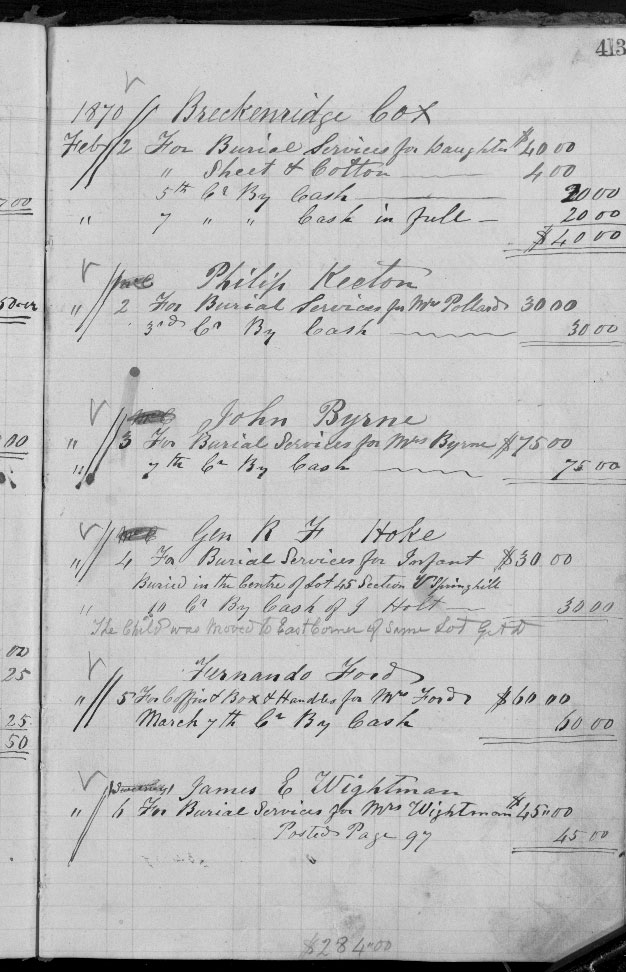 413
1870 Breckenridge Cox
Feb 2 For Burial Services for Daughter $40 00
" Sheet & Cotton 4 00
5th Cr By Cash 20 00
" 7 " " Cash in full 20 00
$40 00
Philip Keeton
" 2 For Burial Services for Mrs Pollard 30 00
3rd Cr By Cash 30 00
John Byrne
" 3 For Burial Services for Mrs Byrne $75 00
" 7th Cr By Cash 75 00
Gen R F Hoke
" 4 For Burial Services for Infant $30 00
Buried in the Centre of Lot 45 Section Springhill
" 10 Cr By Cash of J Holt 30 00
The Child was Moved to East Corner of Same Lot
Fernando Ford
" 5 For Coffin & Box & Handles for Mrs Ford $60 00
March 7th Cr By Cash 60 00
James E Wightman
" 6 For Burial Services for Mrs Wightman $45 00
Posted Page 97 45 00
$284 00
7 00
00
00
25
25
50